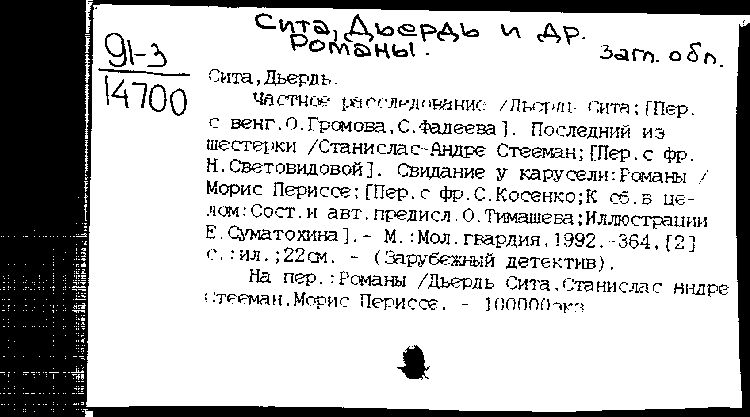 Сита, Дьердь и др.
Романы.
Загл. обл.
91-3
14700
Сита,Дьердь.
Частное расследование /Дьердь Сита;[Пер.
с венг.О.Громова,С.Фадеева]. Последний из
шестерки /Станислас-Андре Стееман;[Пер.с фр.
Н.Световидовой]. Свидание у карусели:Романы /
Морис Периссе;[Пер.с фр.С.Косенко;К сб.в це-
лом:Сост.и авт.предисл.О.Тимашева;Иллюстрации
Е.Суматохина].- М.:Мол.гвардия,1992.-364,[2]
с.:ил.;22см. - (Зарубежный детектив).
На пер.:Романы /Дьердь Сита,Станислас Андре
Стееман,Морис Периссе. - 100000экз